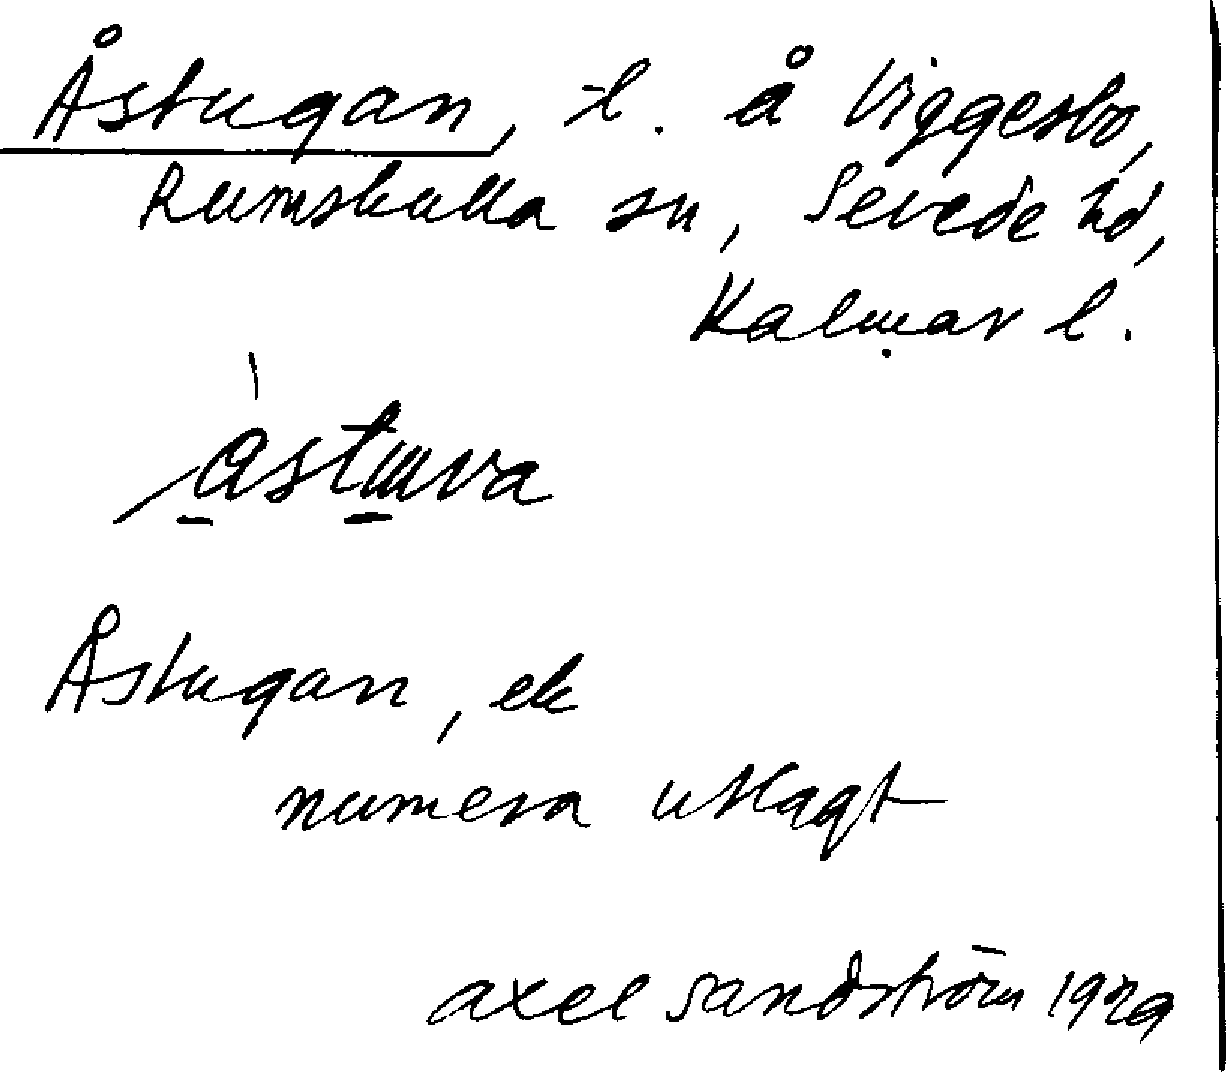 Åstugan, t. å Viggesbo,
Rumskulla sn, Sevede hd,
Kalmar l.
Åstugan, ek
numera utlagt
axel sandström 1929